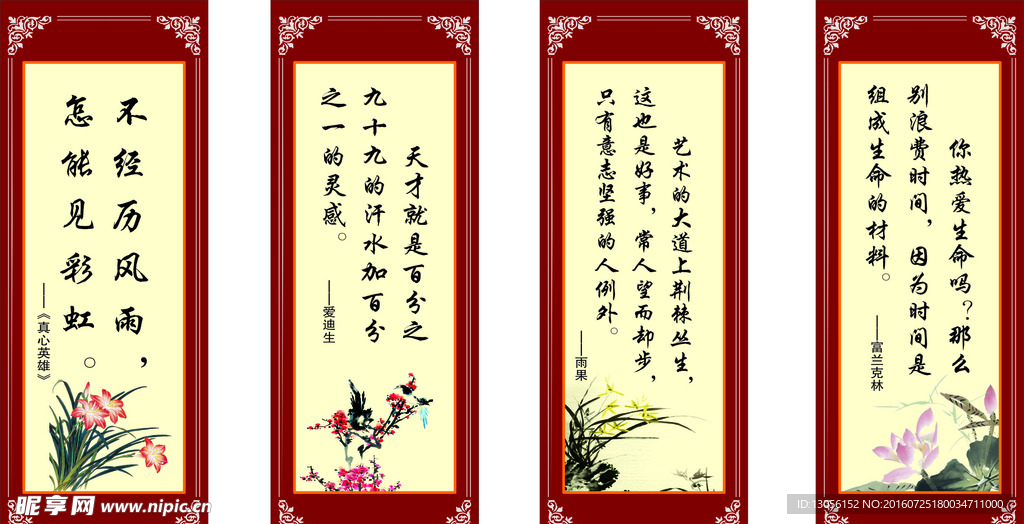 不经历风雨，
怎能见彩虹。
——《真心英雄》
天才就是百分之
九十九的汗水加百分
之一的灵感。
——爱迪生
艺术的大道上荆棘丛生，
这也是好事，常人望而却步，
只有意志坚强的人例外。
——雨果
你热爱生命吗？那么
别浪费时间，因为时间是
组成生命的材料。
——富兰克林
昵享网 www.nipic.cn
ID:13056152 NO:20160725180034711000